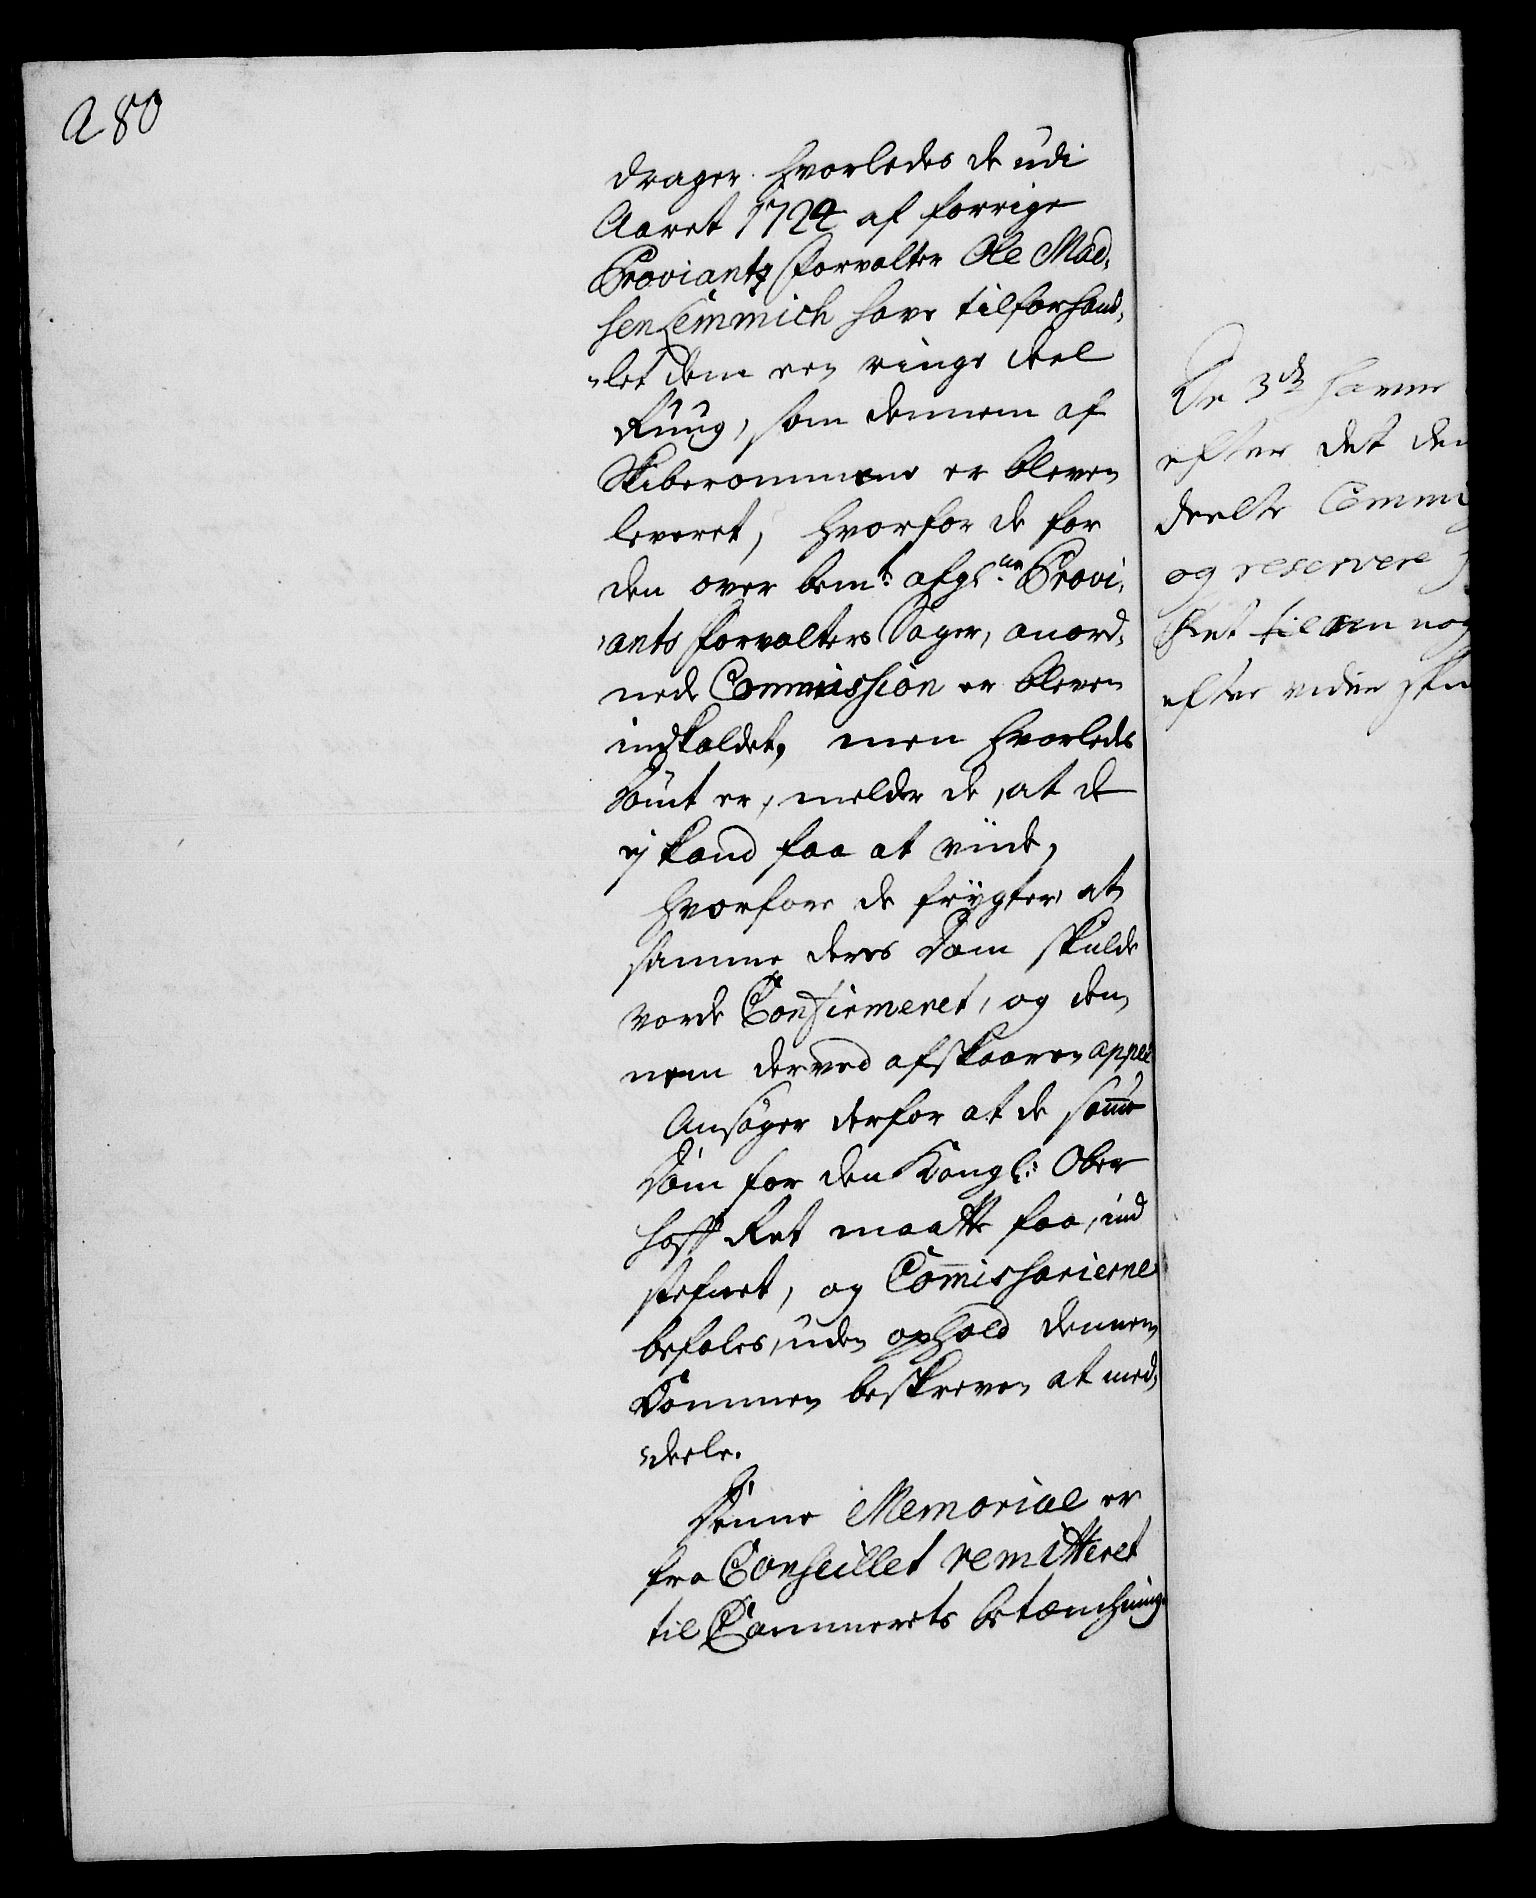 280
drager hvorledes de udi
Aaret 1724 af forrige
Proviants Forvalter Ole Mad,
sen Lemmich have tilforhand,
,let dem een ringe deel
Ruug, som dennem af
Skiberommene er bleven
leveret, hvorfor de for
den over bemt. afgl. Provi,
,ants Forvalters Sager, anord,
nede Commission er bleven
indkaldet, men hvorledes
dømt er, melder de, at de
ej kand faa at viide,
Hvorfore de frygter, at
samme deres Dom skulde
vorde Confirmeret, og den
nem derved afskaaren appel
Ansøger derfor at de samme
Dom for den Kongl: Ober
Hoff Ret maatte faa, ind
stefnet, og Commissarierne
befales, uden ophold dennem
Dommen beskreven at med,
,deele.
Denne Memorial er
fra Conseillet remitteret
til Cammerets betænchning
De 3de haver
efter det den
deelte Commi
og reservere
Ret til
efter viden